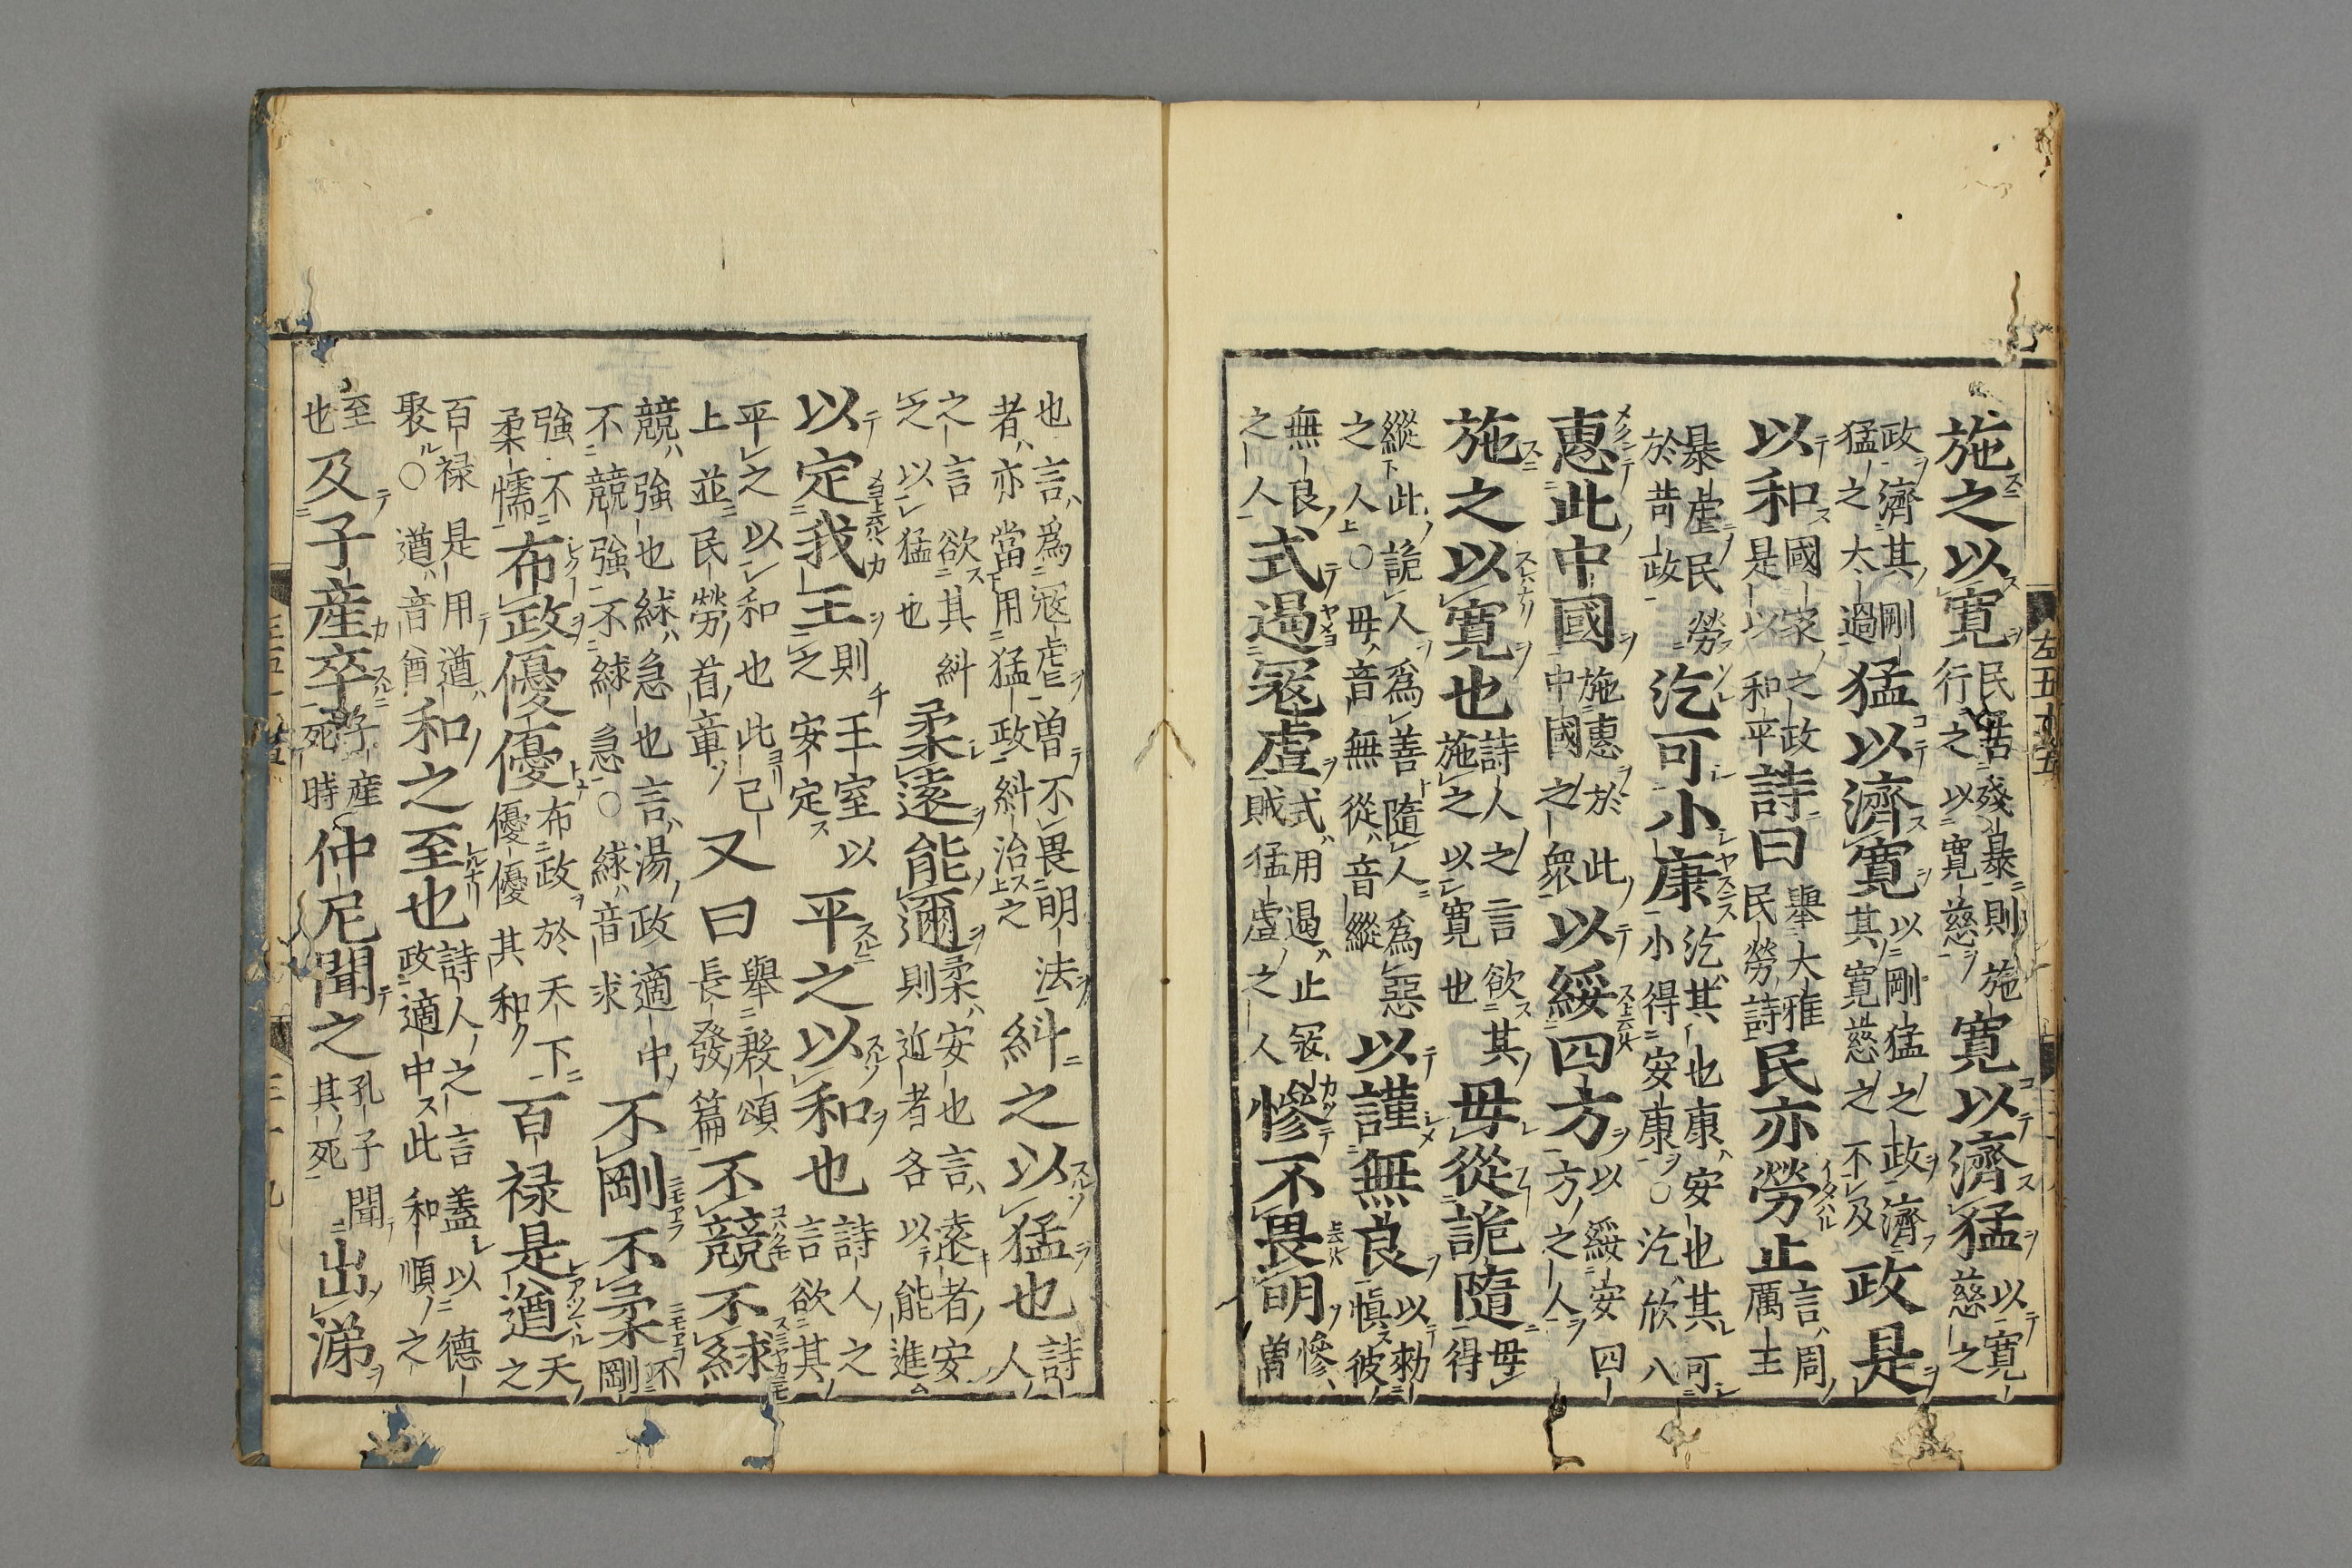 左五十五
施之以寛民苦殘暴則施行之以寛慈寛以濟猛以寛慈之
政濟其剛猛之太過猛以濟寛以剛猛之政濟其寛慈之不及政是
以和國家之政是以和平詩曰舉大雅民勞詩民亦勞止言周厲主
暴虐民勞於苛政汔可小康汔其也康安也其可小得安康○汔欣八
惠此中國施惠於此中國之衆以綏四方以綏安四方之人
施之以寛也詩人之言欲其施之以寛也毋從詭隨毋得
縱此詭人為善隨人為惡之人○毋音無從音縱以謹無良以勑慎彼
無良之人式遏寇虐式用遏止寇賊猛虐之人慘不畏明慘曽
也言為寇虐曽不畏明法者亦當用猛政糾治之糾之以猛也詩人
之言欲其糾乏以猛也柔遠能邇柔安也言遠者安則近者各以能進
以定我王則王室以之安定平之以和也詩人之言欲其
平之以和也此已上並民勞首章又曰舉殷頌長發篇不競不絿
競強也絿急也言湯政適中不競強不絿急○絿音求不剛不柔不剛
強不柔懦布政優優布政於天下優優其和百禄是遒天之
百禄是用遒聚○遒音酋和之至也詩人之言蓋以德政適中此和順之
至也及子産卒子産死時仲尼聞之孔子聞其死出涕